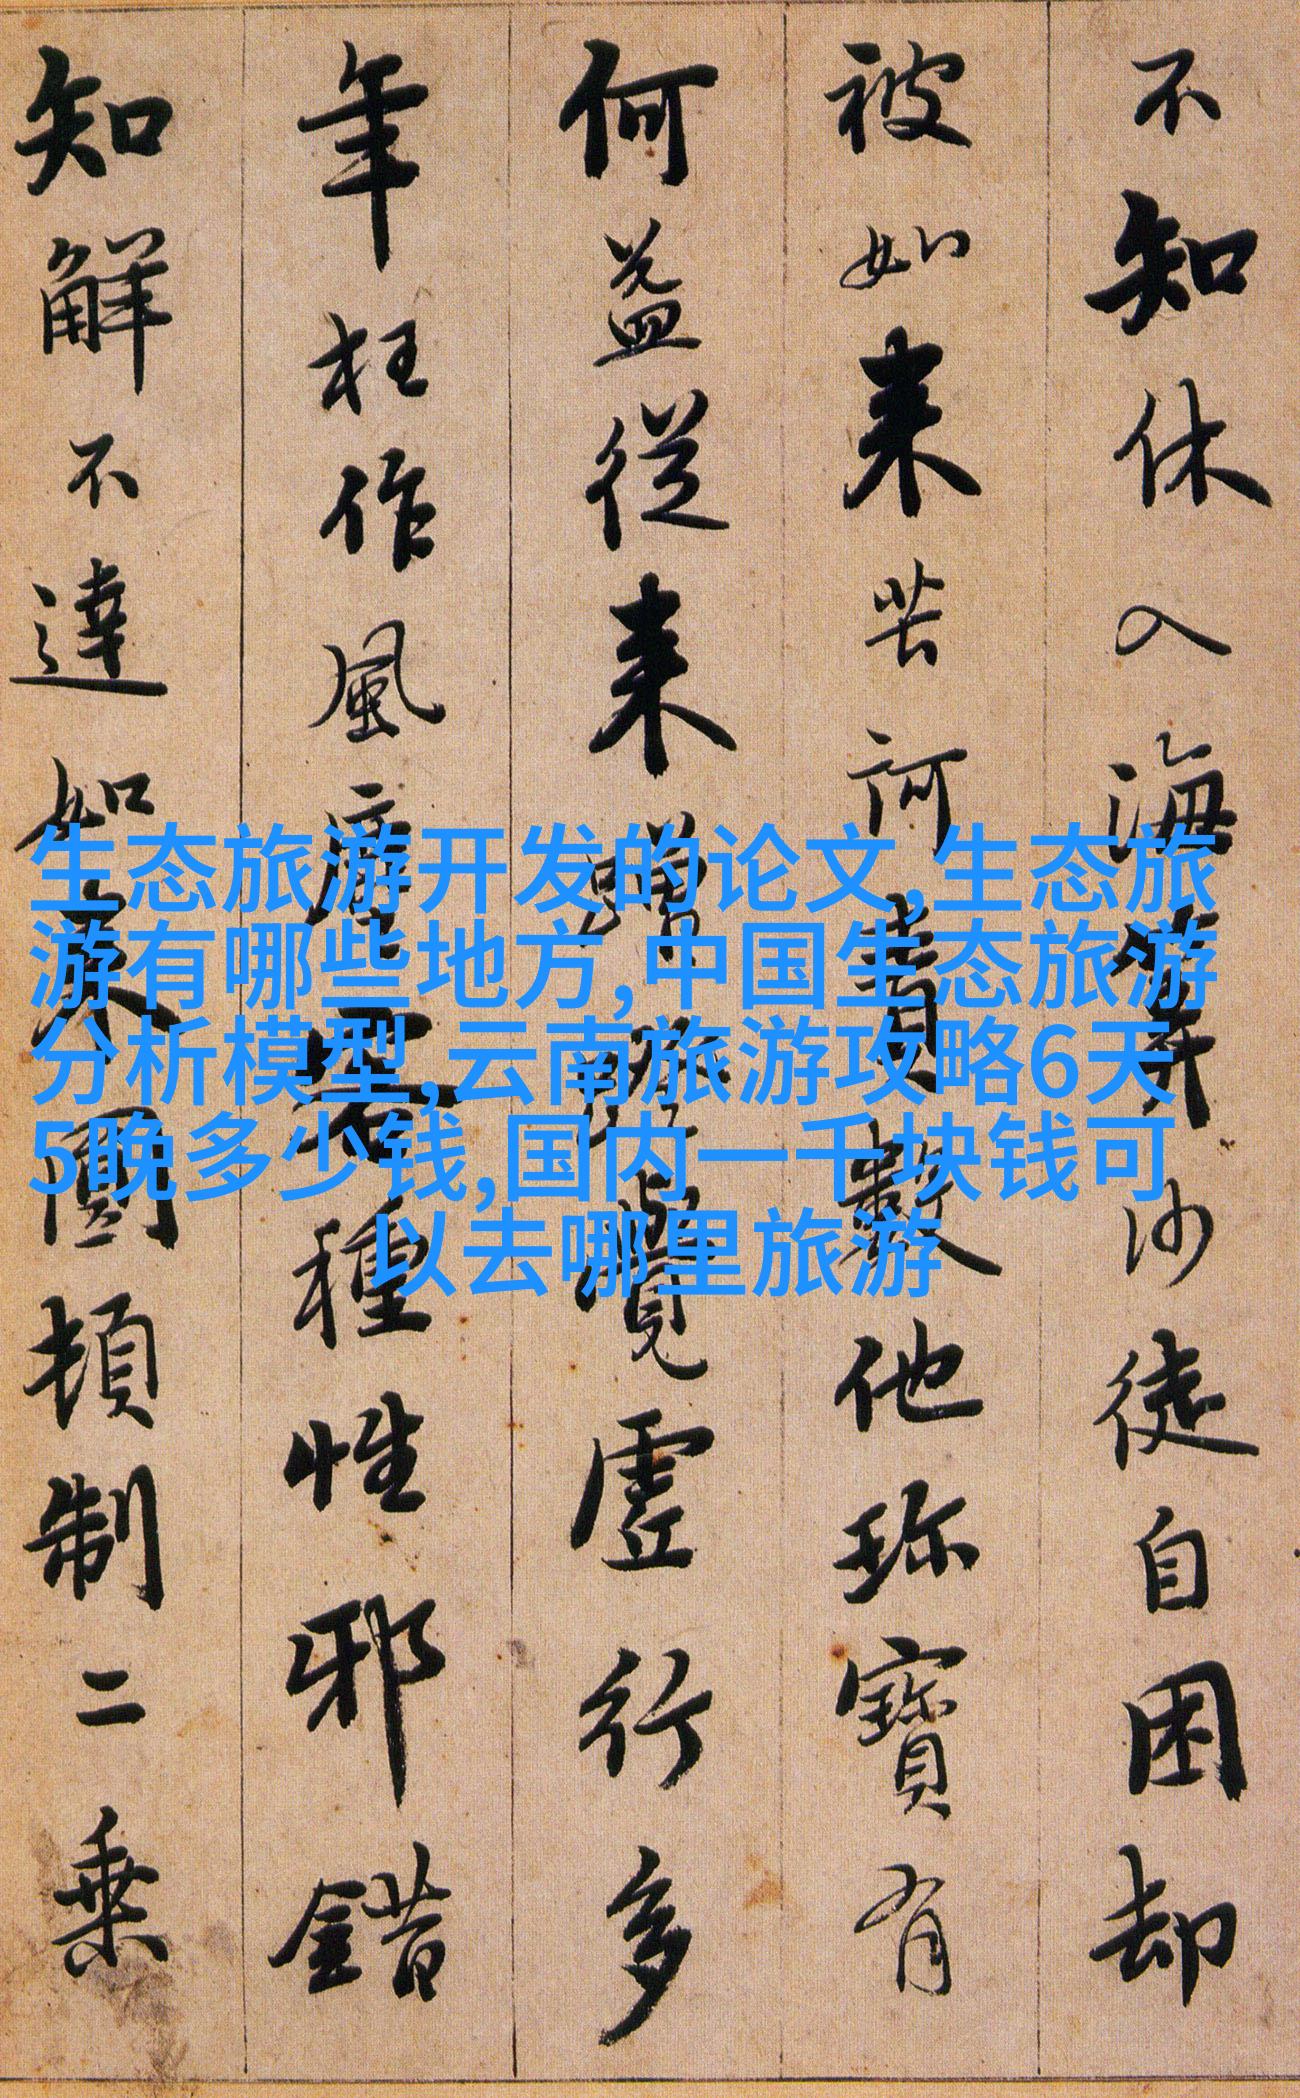 不知休入海筭沙徒自困却
被如来苦訶責數他珎寶有
何益從来蹭蹬覺虛行多
年枉作風塵客種性邪錯
知解不達如来圓頓制二乘
生态旅游开发的论文,生态旅
游有哪些地方,中国生态旅游
分析模型,云南旅游攻略6天
5晚多少钱,国内一千块钱可
以去哪里旅游